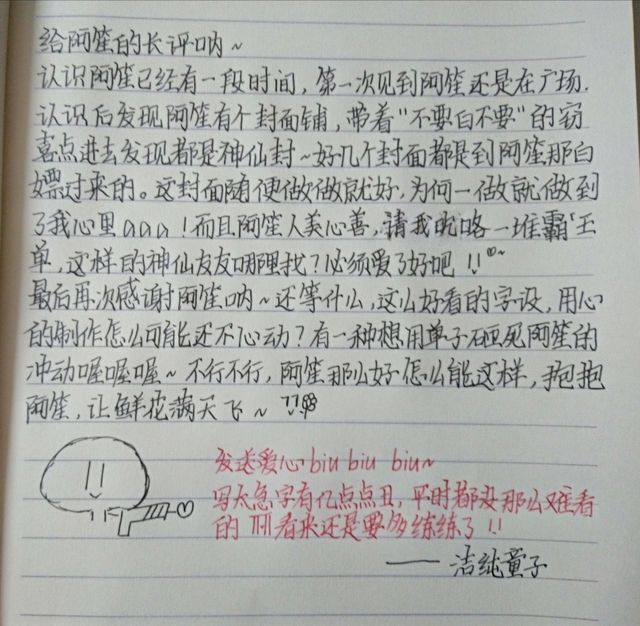 给阿笙的长评呐~
认识阿笙已经有一段时间，第一次见到阿笙还是在广场.
认识后发现阿笙有个封面铺，带着“不要白不要”的窃
喜点进去发现都是神仙封~好几个封面都是到阿笙那白
嫖过来的。这封面随便做做就好，为何一做就做到
了我心里aaa！而且阿笙人美心善，请我吃咯一堆霸王
单，这样的神仙友友哪里找？必须爱了好吧!!
最后再次感谢阿笙呐~还等什么，这么好看的字设，用心
的制作怎么可能还不心动？有一种想用单子砸死阿笙的
冲动喔喔喔~不行不行，阿笙那么好怎么能这样，抱抱
阿笙，让鲜花满天飞~
发送爱心biu biu biu~
写太急字有亿点点丑，平时都没那么难看
的 看来还是要多练练了!!
——洁纯童子